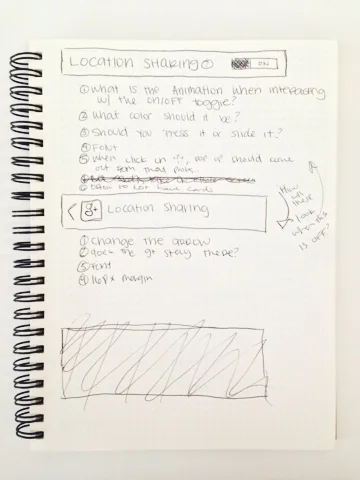 LOCATION SHARING ? ON
① What is the Animation when interacting
w/ the on/off toggle?
② What color should it be?
③ Should you press it or slide it?
④ FONT
⑤ When click on "?", pop up should come
out from that
⑥ Does not have cards
< g+ Location Sharing
① Change the arrow
② Does the g+ stay there?
③ Font
④ 16px margin
How
does
look
when this
is OFF?